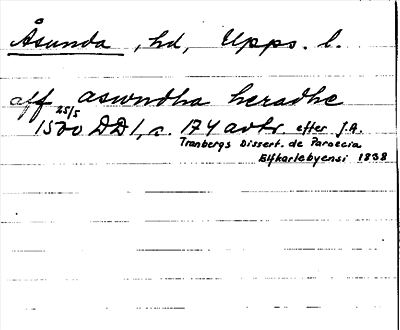 Åsunda, hd, Upps. l.
aff aswndha heradhe
25/5 1500 DD 1, s. 174 avkr. efter J.A.
Tranbergs Dissert. de Paroecia
Elfkarlebyensi 1838